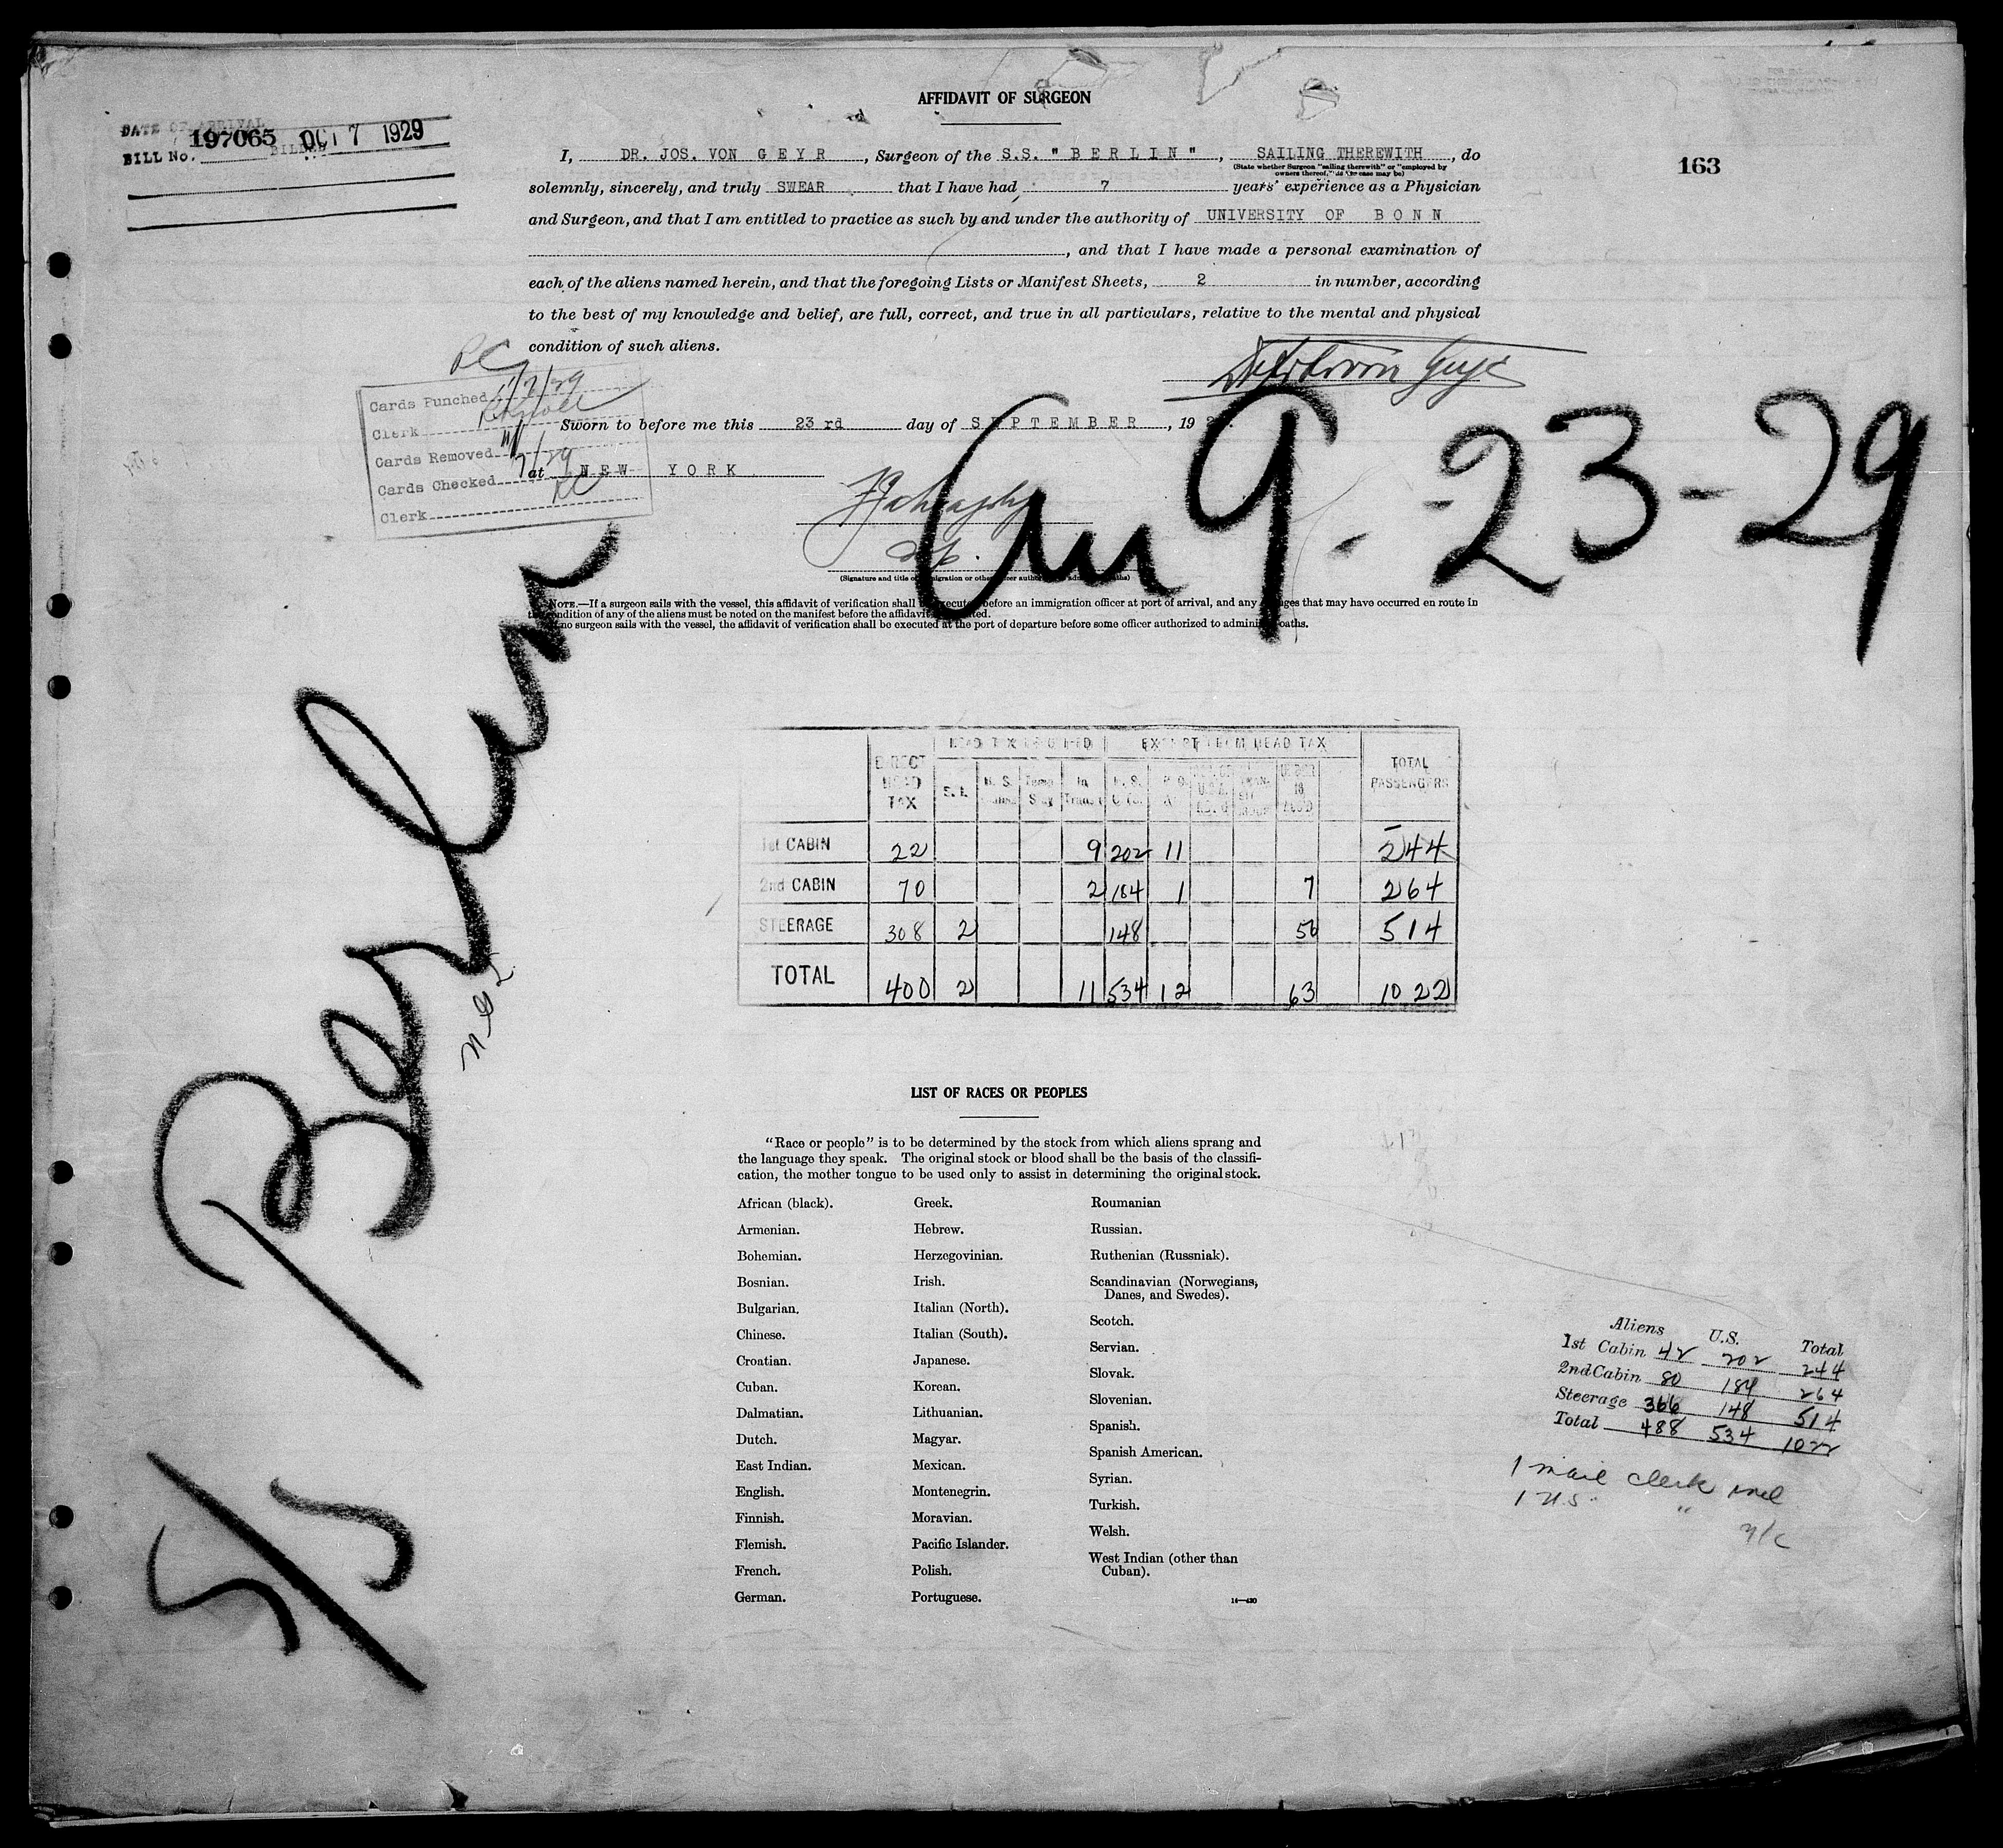 AFFIDAVIT OF SURGEON
DATE OF ARRIVAL
BILL No. 197065 BILLED OCT 7 1929
163
I, DR. JOS. VON G E Y R, Surgeon of the S.S. "B E R L I N", SAILING THEREWITH, do
(State whether Surgeon "sailing therewith" or "employed by
owners thereof," as the case may be)
solemnly, sincerely, and truly SWEAR that I have had 7 years' experience as a Physician
and Surgeon, and that I am entitled to practice as such by and under the authority of UNIVERSITY OF B O N N
, and that I have made a personal examination of
each of the aliens named herein, and that the foregoing Lists or Manifest Sheets, 2 in number, according
to the best of my knowledge and belief, are full, correct, and true in all particulars, relative to the mental and physical
condition of such aliens.
RC
Cards Punched 1/7/29
Clerk
Cards Removed
Cards Checked 7/29
Clerk RC
Sworn to before me this 23 rd day of S E P T E M B E R, 19
at N E W Y O R K
(Signature and title of immigration or other officer authorized to administer oaths)
Arr 9-23-29
NOTE.—If a surgeon sails with the vessel, this affidavit of verification shall be executed before an immigration officer at port of arrival, and any changes that may have occurred en route in
the condition of any of the aliens must be noted on the manifest before the affidavit is executed.
If no surgeon sails with the vessel, the affidavit of verification shall be executed at the port of departure before some officer authorized to administer oaths.
S/S Berlin
DIRECT HEAD TAX
EXEMPT FROM HEAD TAX
TOTAL PASSENGERS
1st CABIN 22 9 202 11 244
2nd CABIN 70 2 184 1 7 264
STEERAGE 308 2 148 56 514
TOTAL 400 2 11 534 12 63 1022
LIST OF RACES OR PEOPLES
"Race or people" is to be determined by the stock from which aliens sprang and
the language they speak. The original stock or blood shall be the basis of the classifi-
cation, the mother tongue to be used only to assist in determining the original stock.
African (black).
Armenian.
Bohemian.
Bosnian.
Bulgarian.
Chinese.
Croatian.
Cuban.
Dalmatian.
Dutch.
East Indian.
English.
Finnish.
Flemish.
French.
German.
Greek.
Hebrew.
Herzegovinian.
Irish.
Italian (North).
Italian (South).
Japanese.
Korean.
Lithuanian.
Magyar.
Mexican.
Montenegrin.
Moravian.
Pacific Islander.
Polish.
Portuguese.
Roumanian
Russian.
Ruthenian (Russniak).
Scandinavian (Norwegians,
Danes, and Swedes).
Scotch.
Servian.
Slovak.
Slovenian.
Spanish.
Spanish American.
Syrian.
Turkish.
Welsh.
West Indian (other than
Cuban).
Aliens U.S. Total
1st Cabin 42 202 244
2nd Cabin 80 184 264
Steerage 366 148 514
Total 488 534 1022
1 mail clerk incl
1 U.S. " n/c